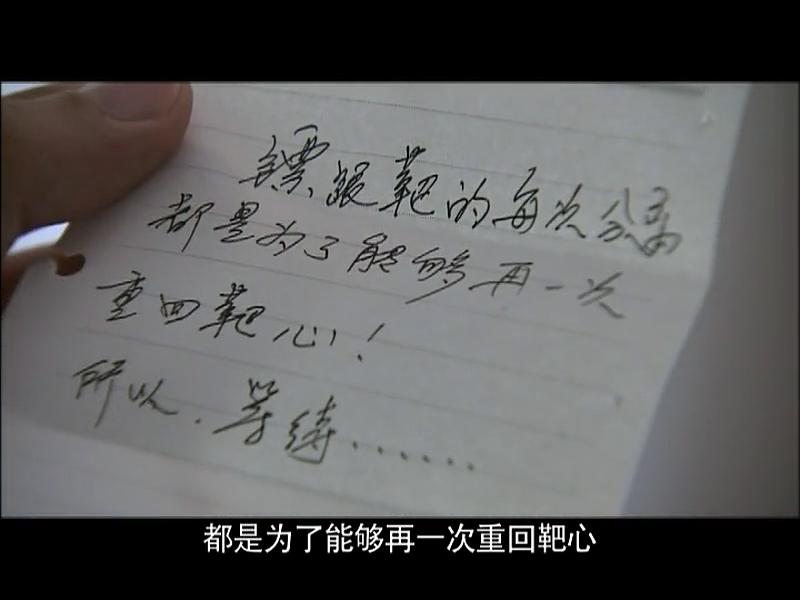 镖跟靶的每次分离
都是为了能够再一次
重回靶心！
所以．等待……
都是为了能够再一次重回靶心